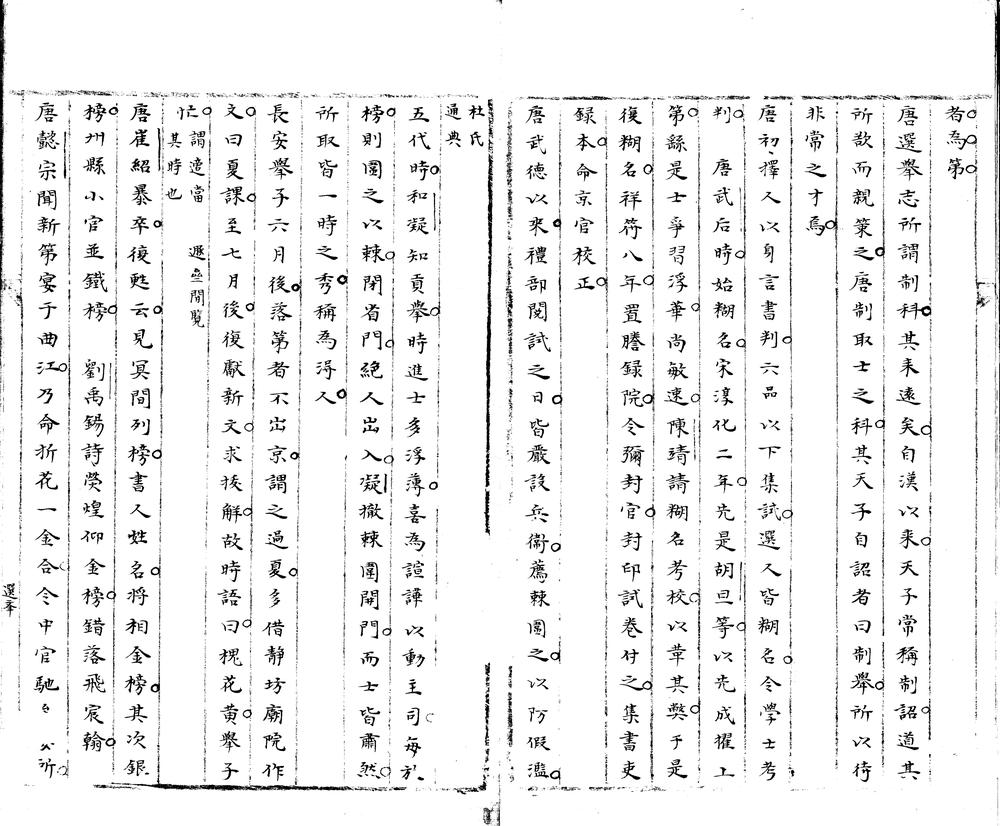 者為第
唐選舉志所謂制科其来遠矣自漢以来天子常稱制詔道其
所欲而親策之唐制取士之科其天子自詔者曰制舉所以待
非常之才焉
唐初擇人以身言書判六品以下集試選人皆糊名令學士考
判　唐武后時始糊名宋淳化二年先是胡旦等以先成擢上
第繇是士爭習浮華尚敏速陳靖請糊名考校以革其弊于是
復糊名祥符八年置謄録院令彌封官封印試卷付之集書吏
録本命京官校正
唐武德以来禮部閱試之日皆嚴設兵衛薦棘圍之以防假濫
杜氏
通典
五代時和凝知貢舉時進士多浮薄喜為諠譁以動主司每放
榜則圍之以棘閉省門絶人出入凝撤棘圍開門而士皆肅然
所取皆一時之秀稱為得人
長安舉子六月後落第者不出京謂之過夏多借静坊廟院作
文曰夏課至七月後復獻新文求拔解故時語曰槐花黄舉子
忙　謂逸當
其時也　遯叄閒覽
唐崔紹暴卒復甦云見冥間列榜書人姓名将相金榜其次銀
榜州縣小官並鐵榜　劉禹錫詩熒煌仰金榜錯落飛宸翰
唐懿宗聞新第宴于曲江乃命折花一金合令中官馳
所
選舉